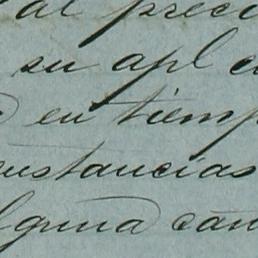 al preci
su apl
en tiemp
cunstancias
lguna can